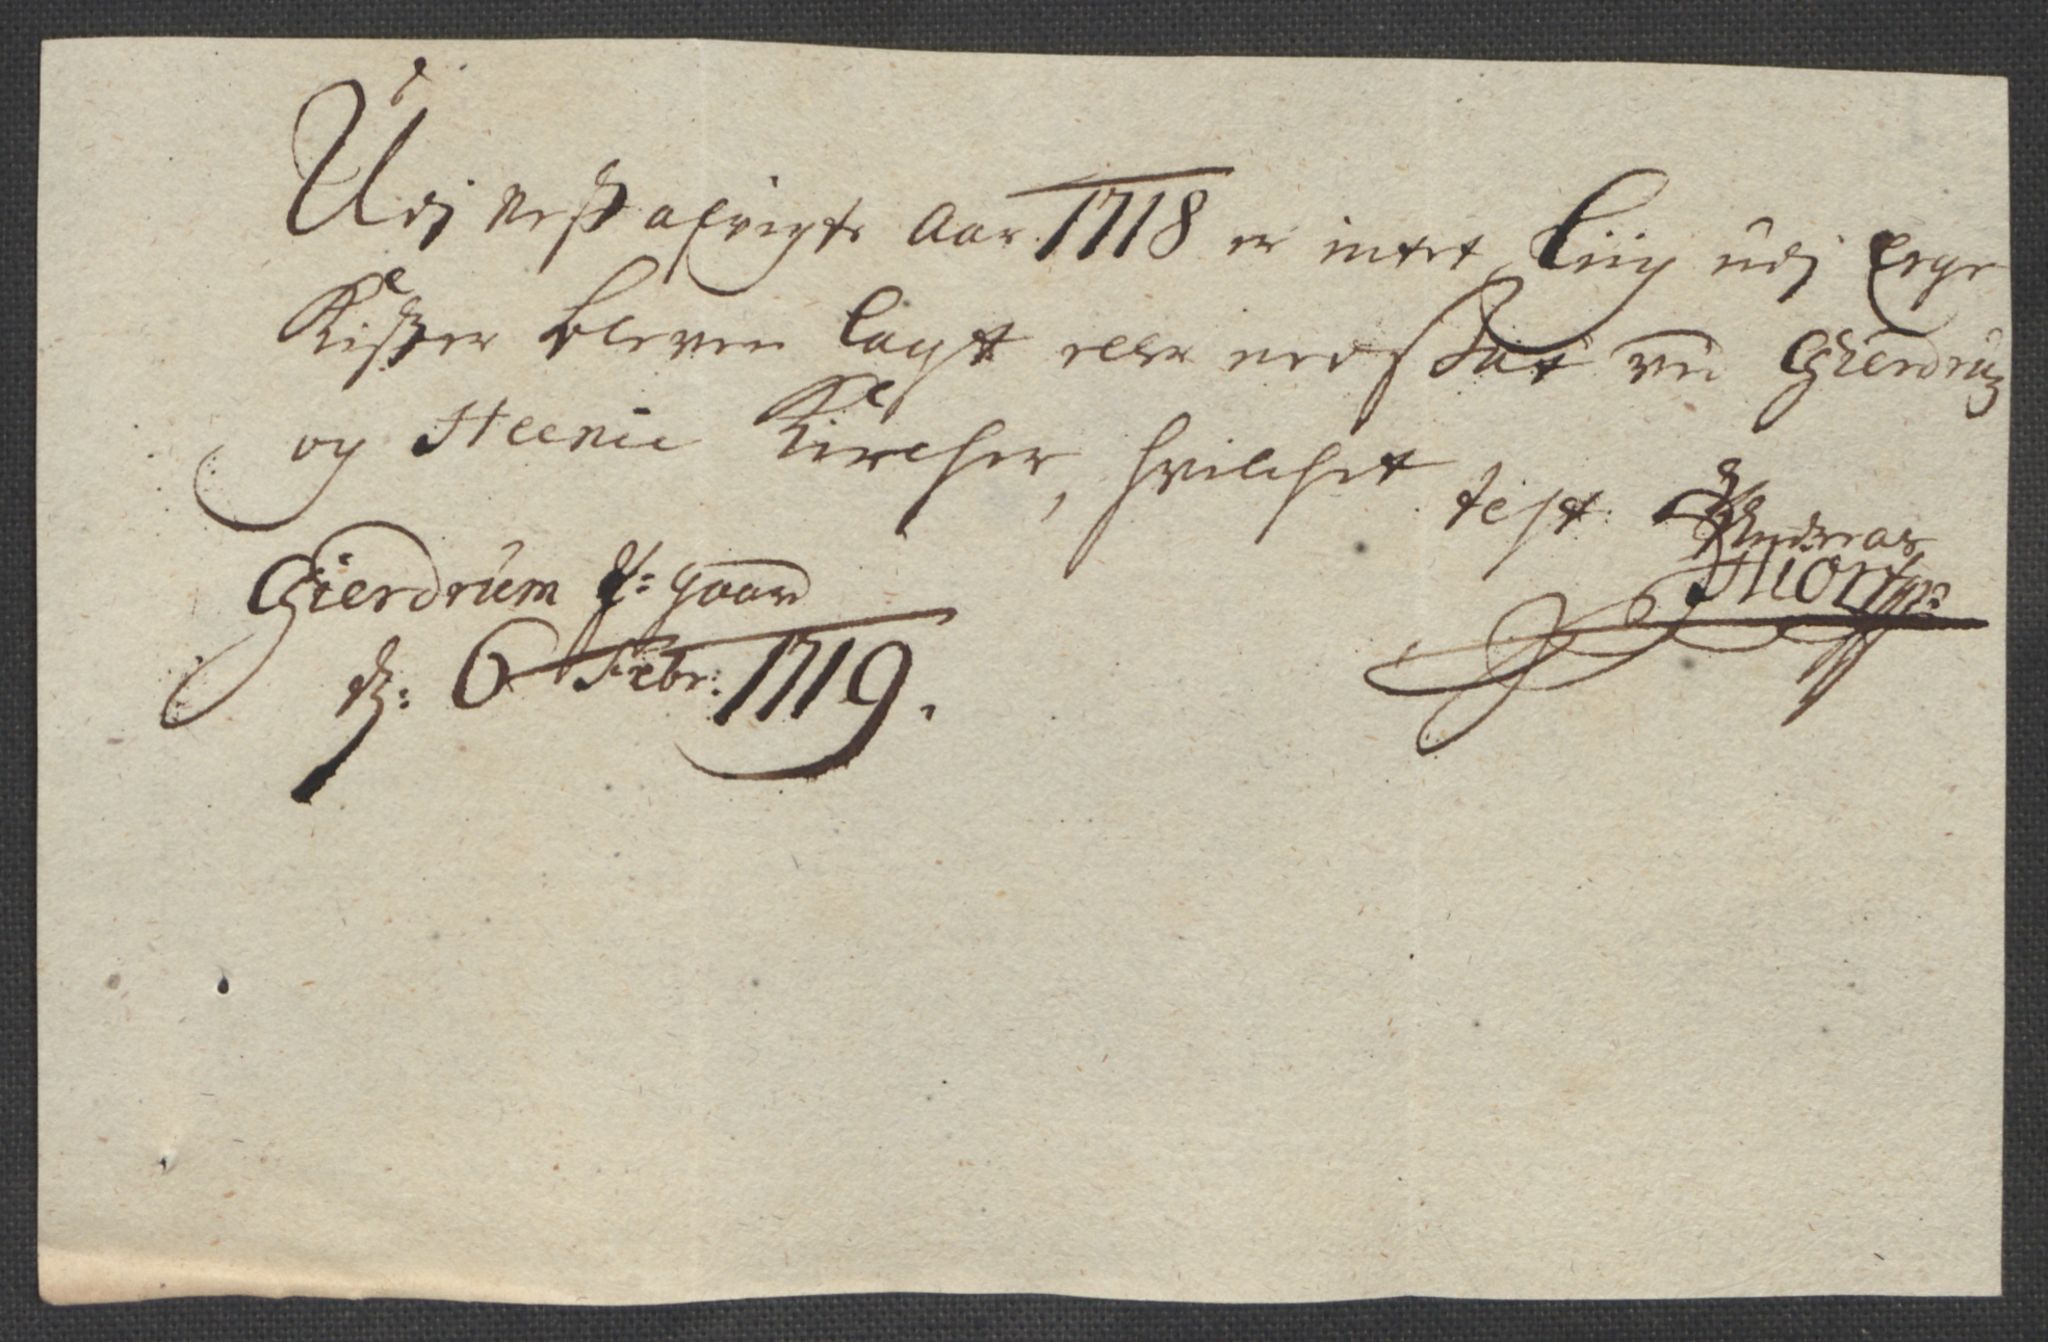 Udj nest afvigte Aar 1718 er intet Liig udj Eege
Kister bleven lagt eller nedsat ved Gierdrum
og Heenie Kircher, hvilchet
test Andreas
Hiort mp:
Gierdrum P: gaard
d: 6 Febr: 1719.